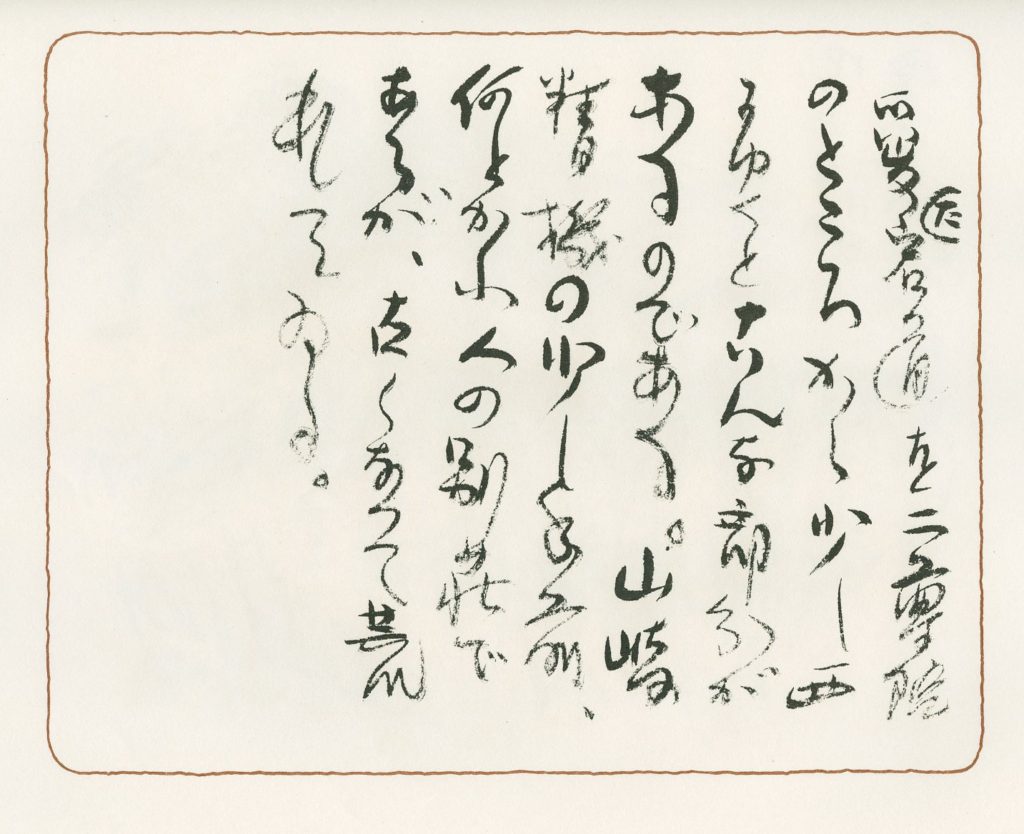 愛宕道を二尊院
のところから少し西
ゆくとこんな部分が
あるのである。山崎
精機の少し手前、
何とかいふ人の別荘で
あるが、古くなつて荒
れてゐる。